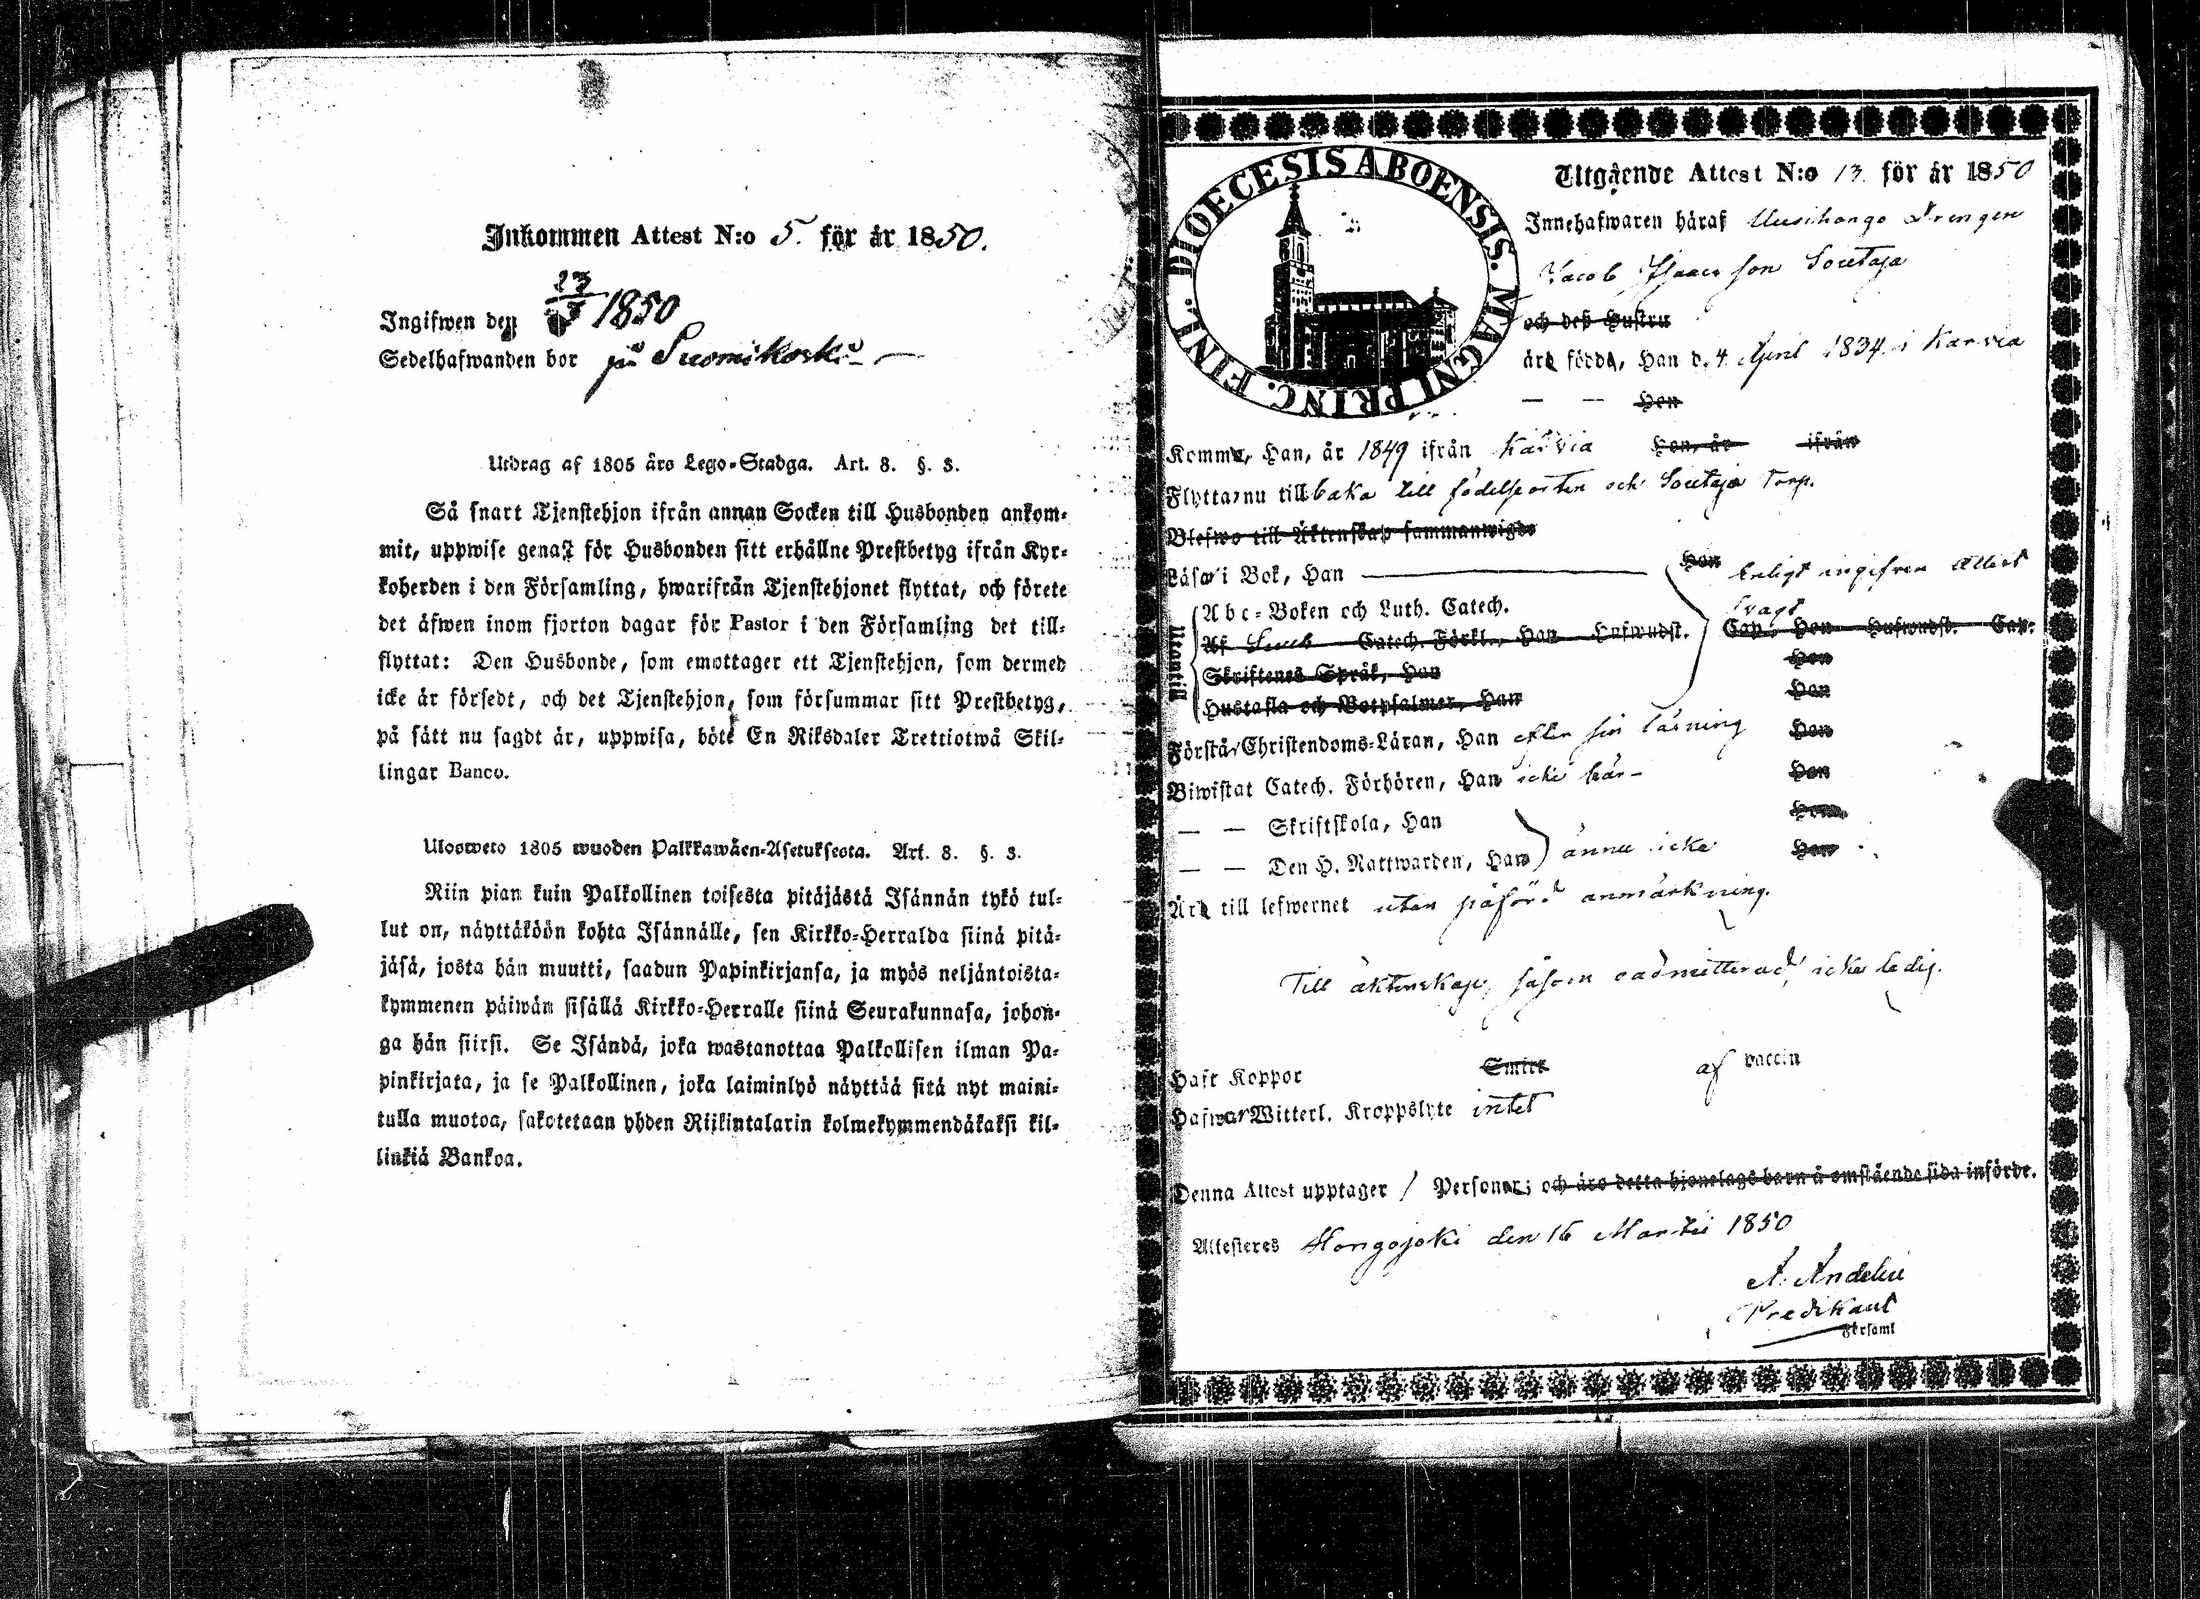 Inkommen Attest N:o 5. för år 1850.
Ingifwen den 23/3 1850
Sedelhafwanden bor på Suomikoski
Utdrag af 1805 års Lego-Stadga. Art. 8. §. 3.
Så snart Tjenstehjon ifrån annan Socken till Husbonden ankom-
mit, uppwise genast för Husbonden sitt erhållne Prestbetyg ifrån Kyr-
koherden i den Församling, hwarifrån Tjenstehjonet flyttat, och förete
det äfwen inom fjorton dagar för Pastor i den Församling det till-
flyttat: Den Husbonde, som emottager ett Tjenstehjon, som dermed
icke är försedt, och det Tjenstehjon, som försummar sitt Prestbetyg,
på sätt nu sagdt är, uppwisa, böte En Riksdaler Trettiotwå Skil-
lingar Banco.
Ulosweto 1805 wuoden Palkkawäen-Asetuksesta. Art. 8. §. 3.
Niin pian kuin Palkollinen toisesta pitäjästä Isännän tykö tul-
lut on, näyttäköön kohta Isännälle, sen Kirkko-Herralda siinä pitä-
jäsä, josta hän muutti, saadun Papinkirjansa, ja myös neljäntoista-
kymmenen päiwän sisällä Kirkko-Herralle siinä Seurakunnasa, johon-
ga hän siirsi. Se Isändä, joka wastanottaa Palkollisen ilman Pa-
pinkirjata, ja se Palkollinen, joka laiminlyö näyttää sitä nyt maini-
tulla muotoa, sakotetaan yhden Riikintalarin kolmekymmendäkaksi kil-
linkiä Bankoa.
DIOECESIS ABOENSIS. MAGNI PRINC. FINL.
Utgående Attest N:o 13. för år 1850
Innehafwaren häraf Uusihongo Drengen
Jacob Isaacsson Soretaja
och deß Hustru
är född, Han d. 4 April 1834 i Karvia
— — Hon
Komme, Han, år 1849 ifrån Karvia Hon, år ifrån
Flyttar nu tillbaka till födelseorten och Soretaja Torp.
Blefwo till Äktenskap sammanwigde
Läsa i Bok, Han Hon enligt ingifven Attest
svagt
Utantill
Abc-Boken och Luth. Catech.
Af Catech. Förkl., Han Hufwudst. Cap., Hon Hufwudst. Cap.
Skriftenes Språk, Han Hon
Hustafla och Botpsalmer, Han Hon
Förstår Christendoms-Läran, Han efter sin läsning Hon
Biwistat Catech. Förhören, Han icke här Hon
— — Skriftskola, Han Hon
— — Den H. Nattwarden, Han ännu icke Hon
Är till lefwernet utan påförd anmärkning.
Till äktenskap, såsom oadmitterad, icke ledig.
Haft Koppor Smitt af vaccin
Hafwar Witterl. Kroppslyte intet
Denna Attest upptager 1 Personer; och äro detta hjonelags barn å omstående sida införde.
Attesteres Hongojoki den 16 Martii 1850
Predikant
Församl